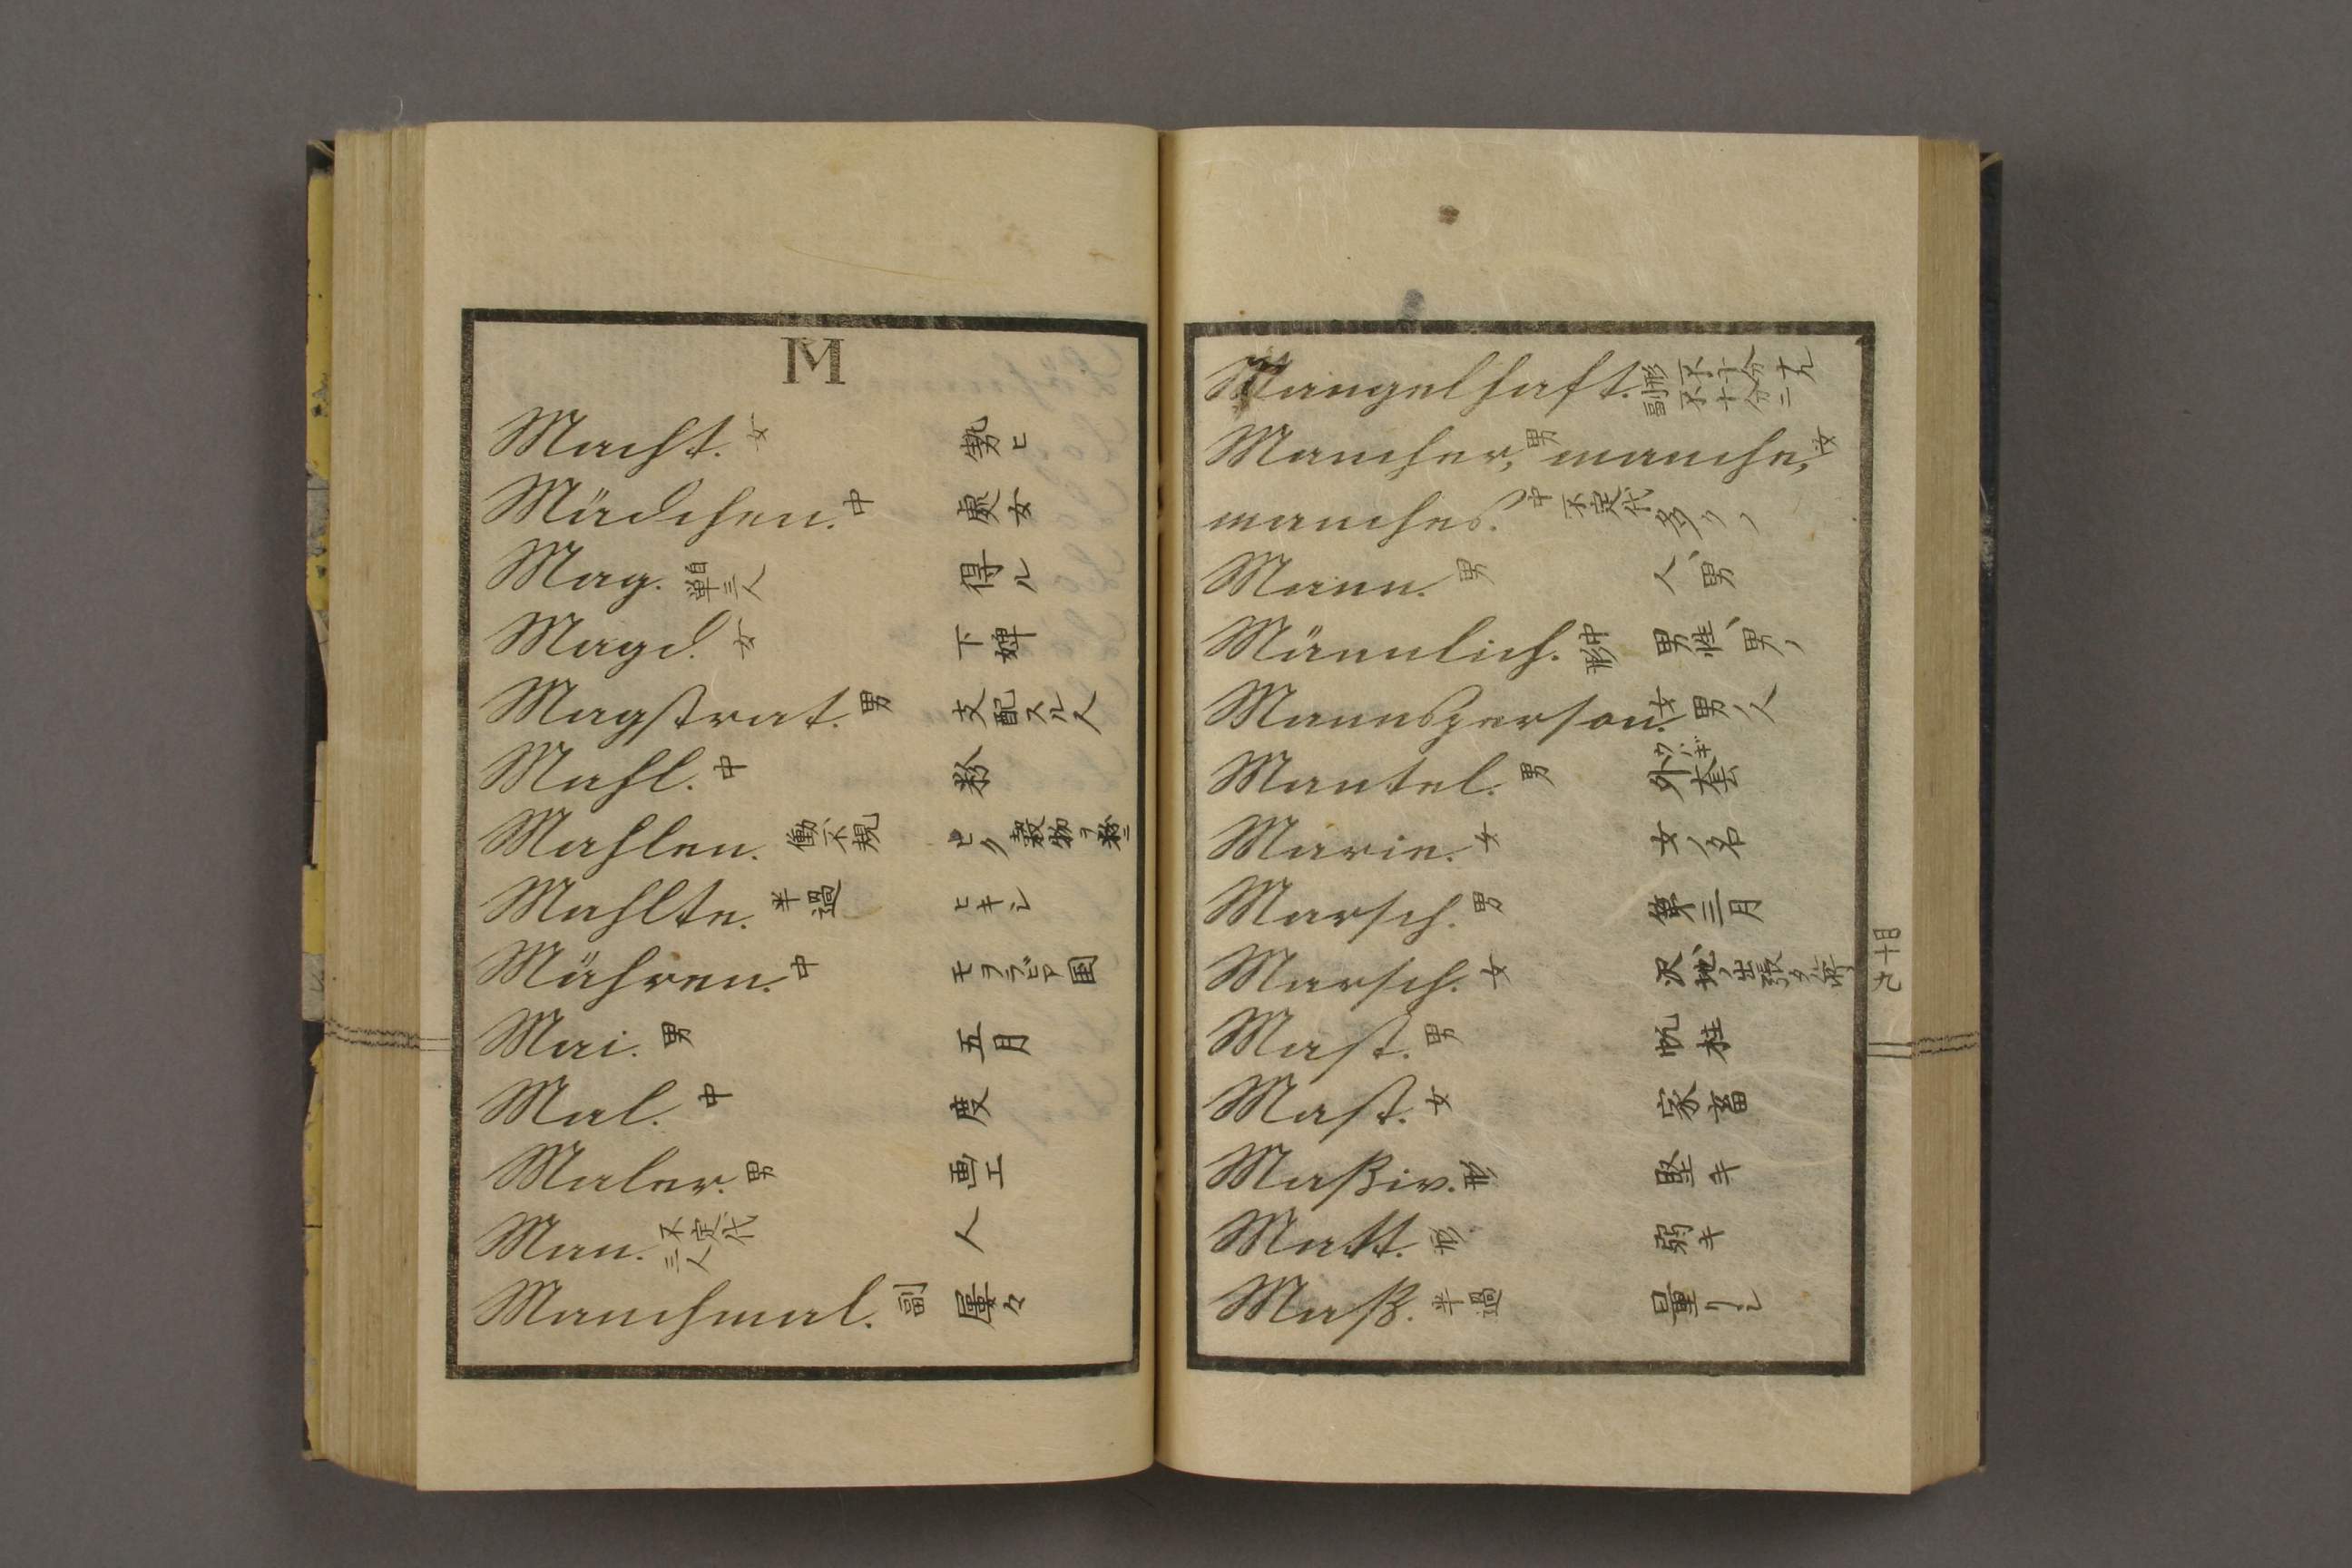 M
Macht. 女 勢ヒ
Mädchen. 中 處女
Mag. 単自三人 得ル
Magd. 女 下婢
Magstrat. 男 支配スル人
Mahl. 中 粉
Mahlen. 働不規 ヒク 穀物ヲ粉ニ
Mahlte. 半過 ヒキシ
Mähren. 中 モヲラビア国
Mai. 男 五月
Mal. 中 度
Maler. 男 画工
Man. 不定代三人 人
Manchmal. 副 屢々
Mangelhaft. 形 不十分ナル 副 不十分ニ
Mancher, 男 manche, 女
manches. 中 不定代 多クノ
Mann. 男 人、男
Männlich. 形 男性、男ノ
Mannsperson. 女 男ノ人
Mantel. 男 外套 ウハギ
Marie. 女 女ノ名
Marsch. 男 第三月
Marsch. 女 沢地、出張タ
Mast. 男 帆柱
Mast. 女 家畜
Maßiv. 形 堅キ
Matt. 形 弱キ
Maß. 半過 量リシ
百十九